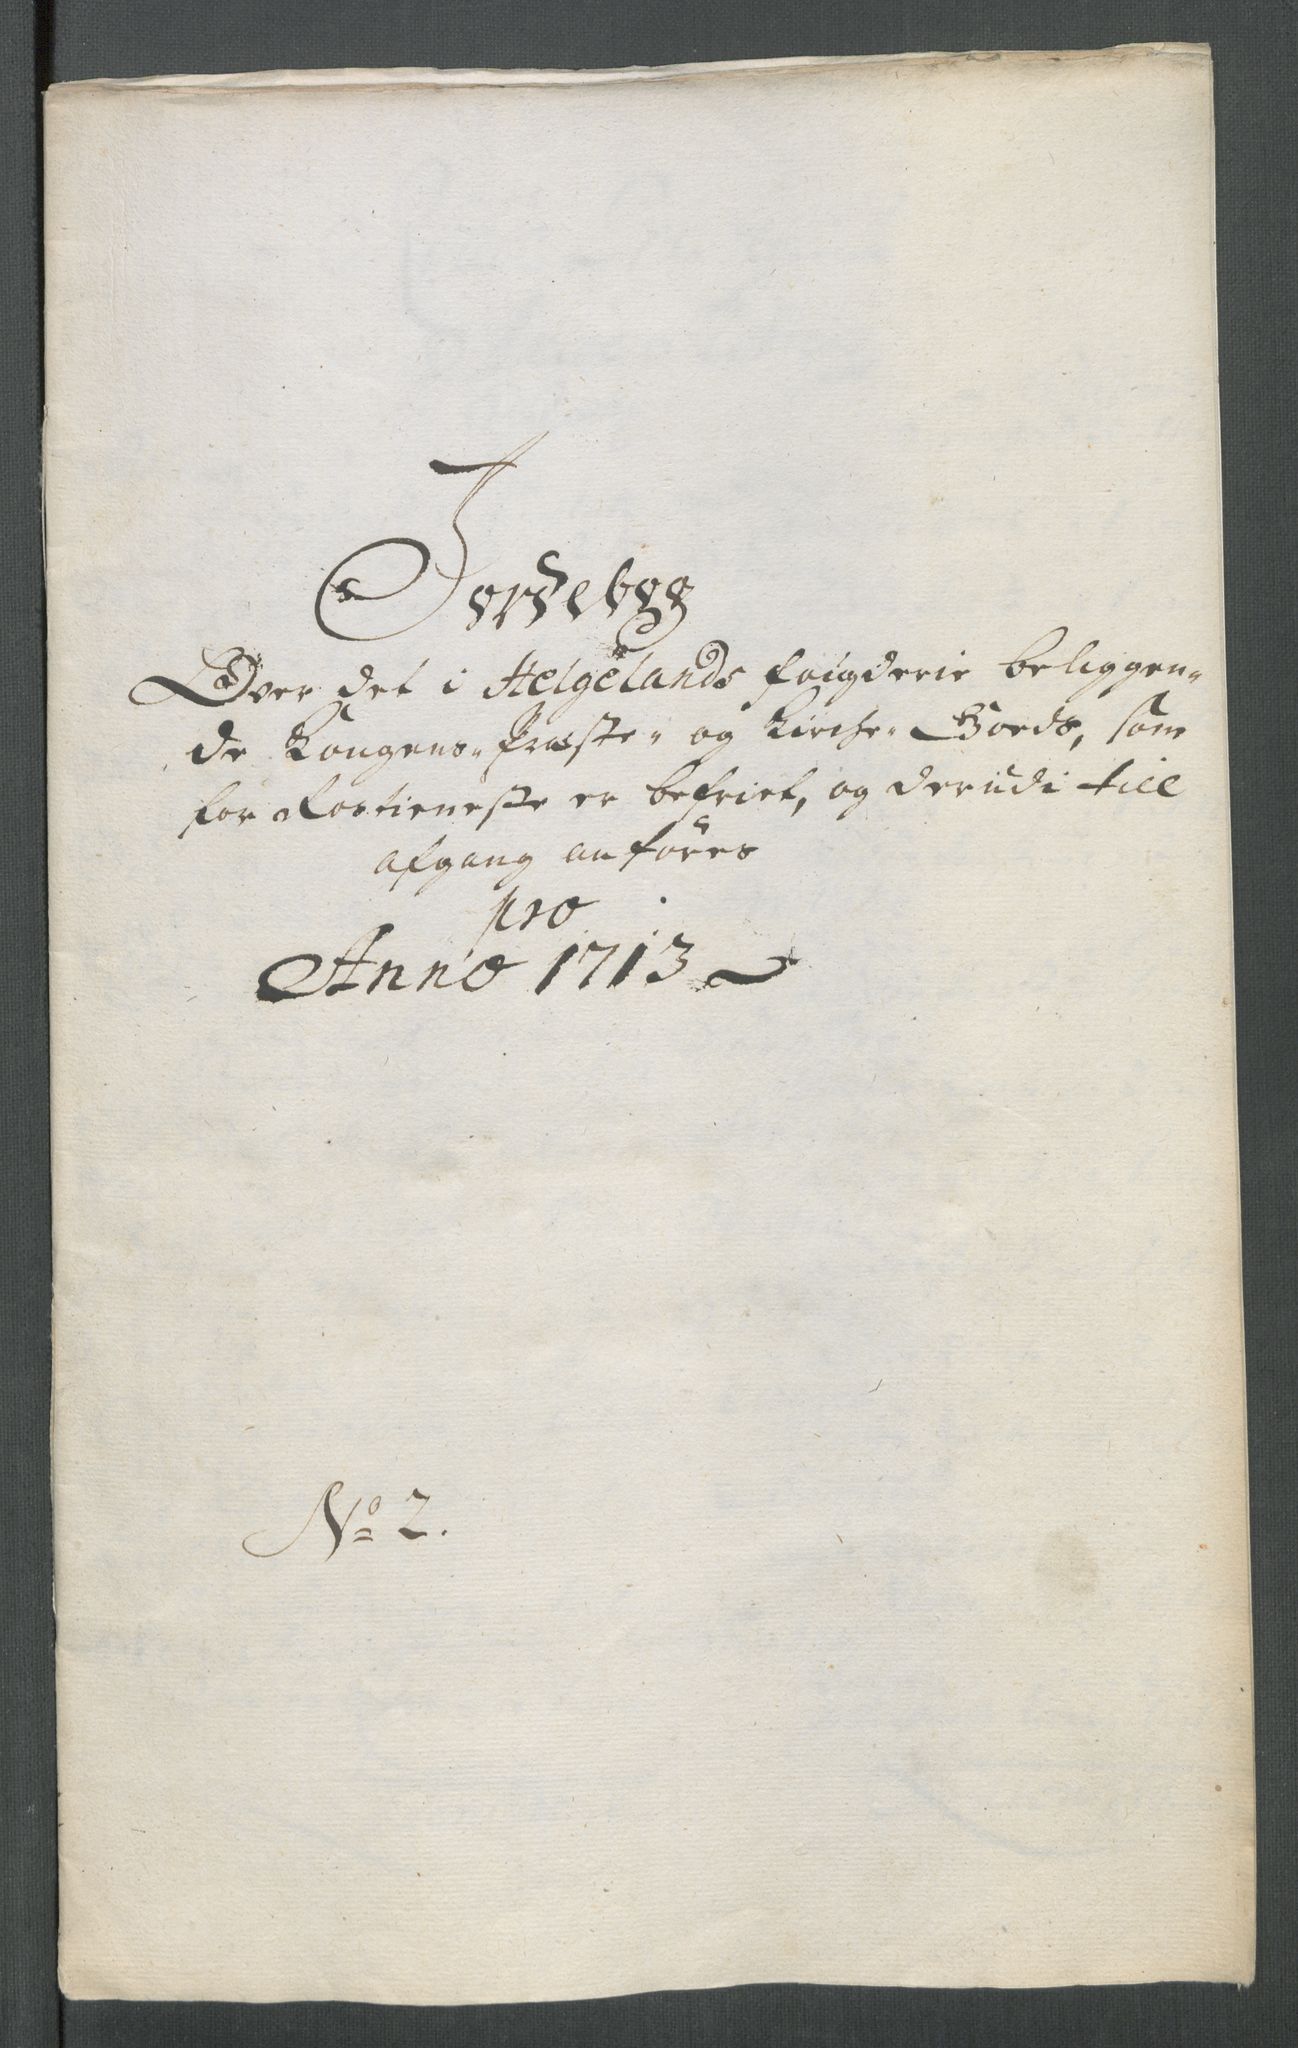 Jordebog
Over det i Helgelands foigderie beliggen-
de Kongens- Præste- og Kirche- Goeds, som
for Rostieneste er befriet, og derudi till
afgang anföres
pro
Anno 1713
No 2.